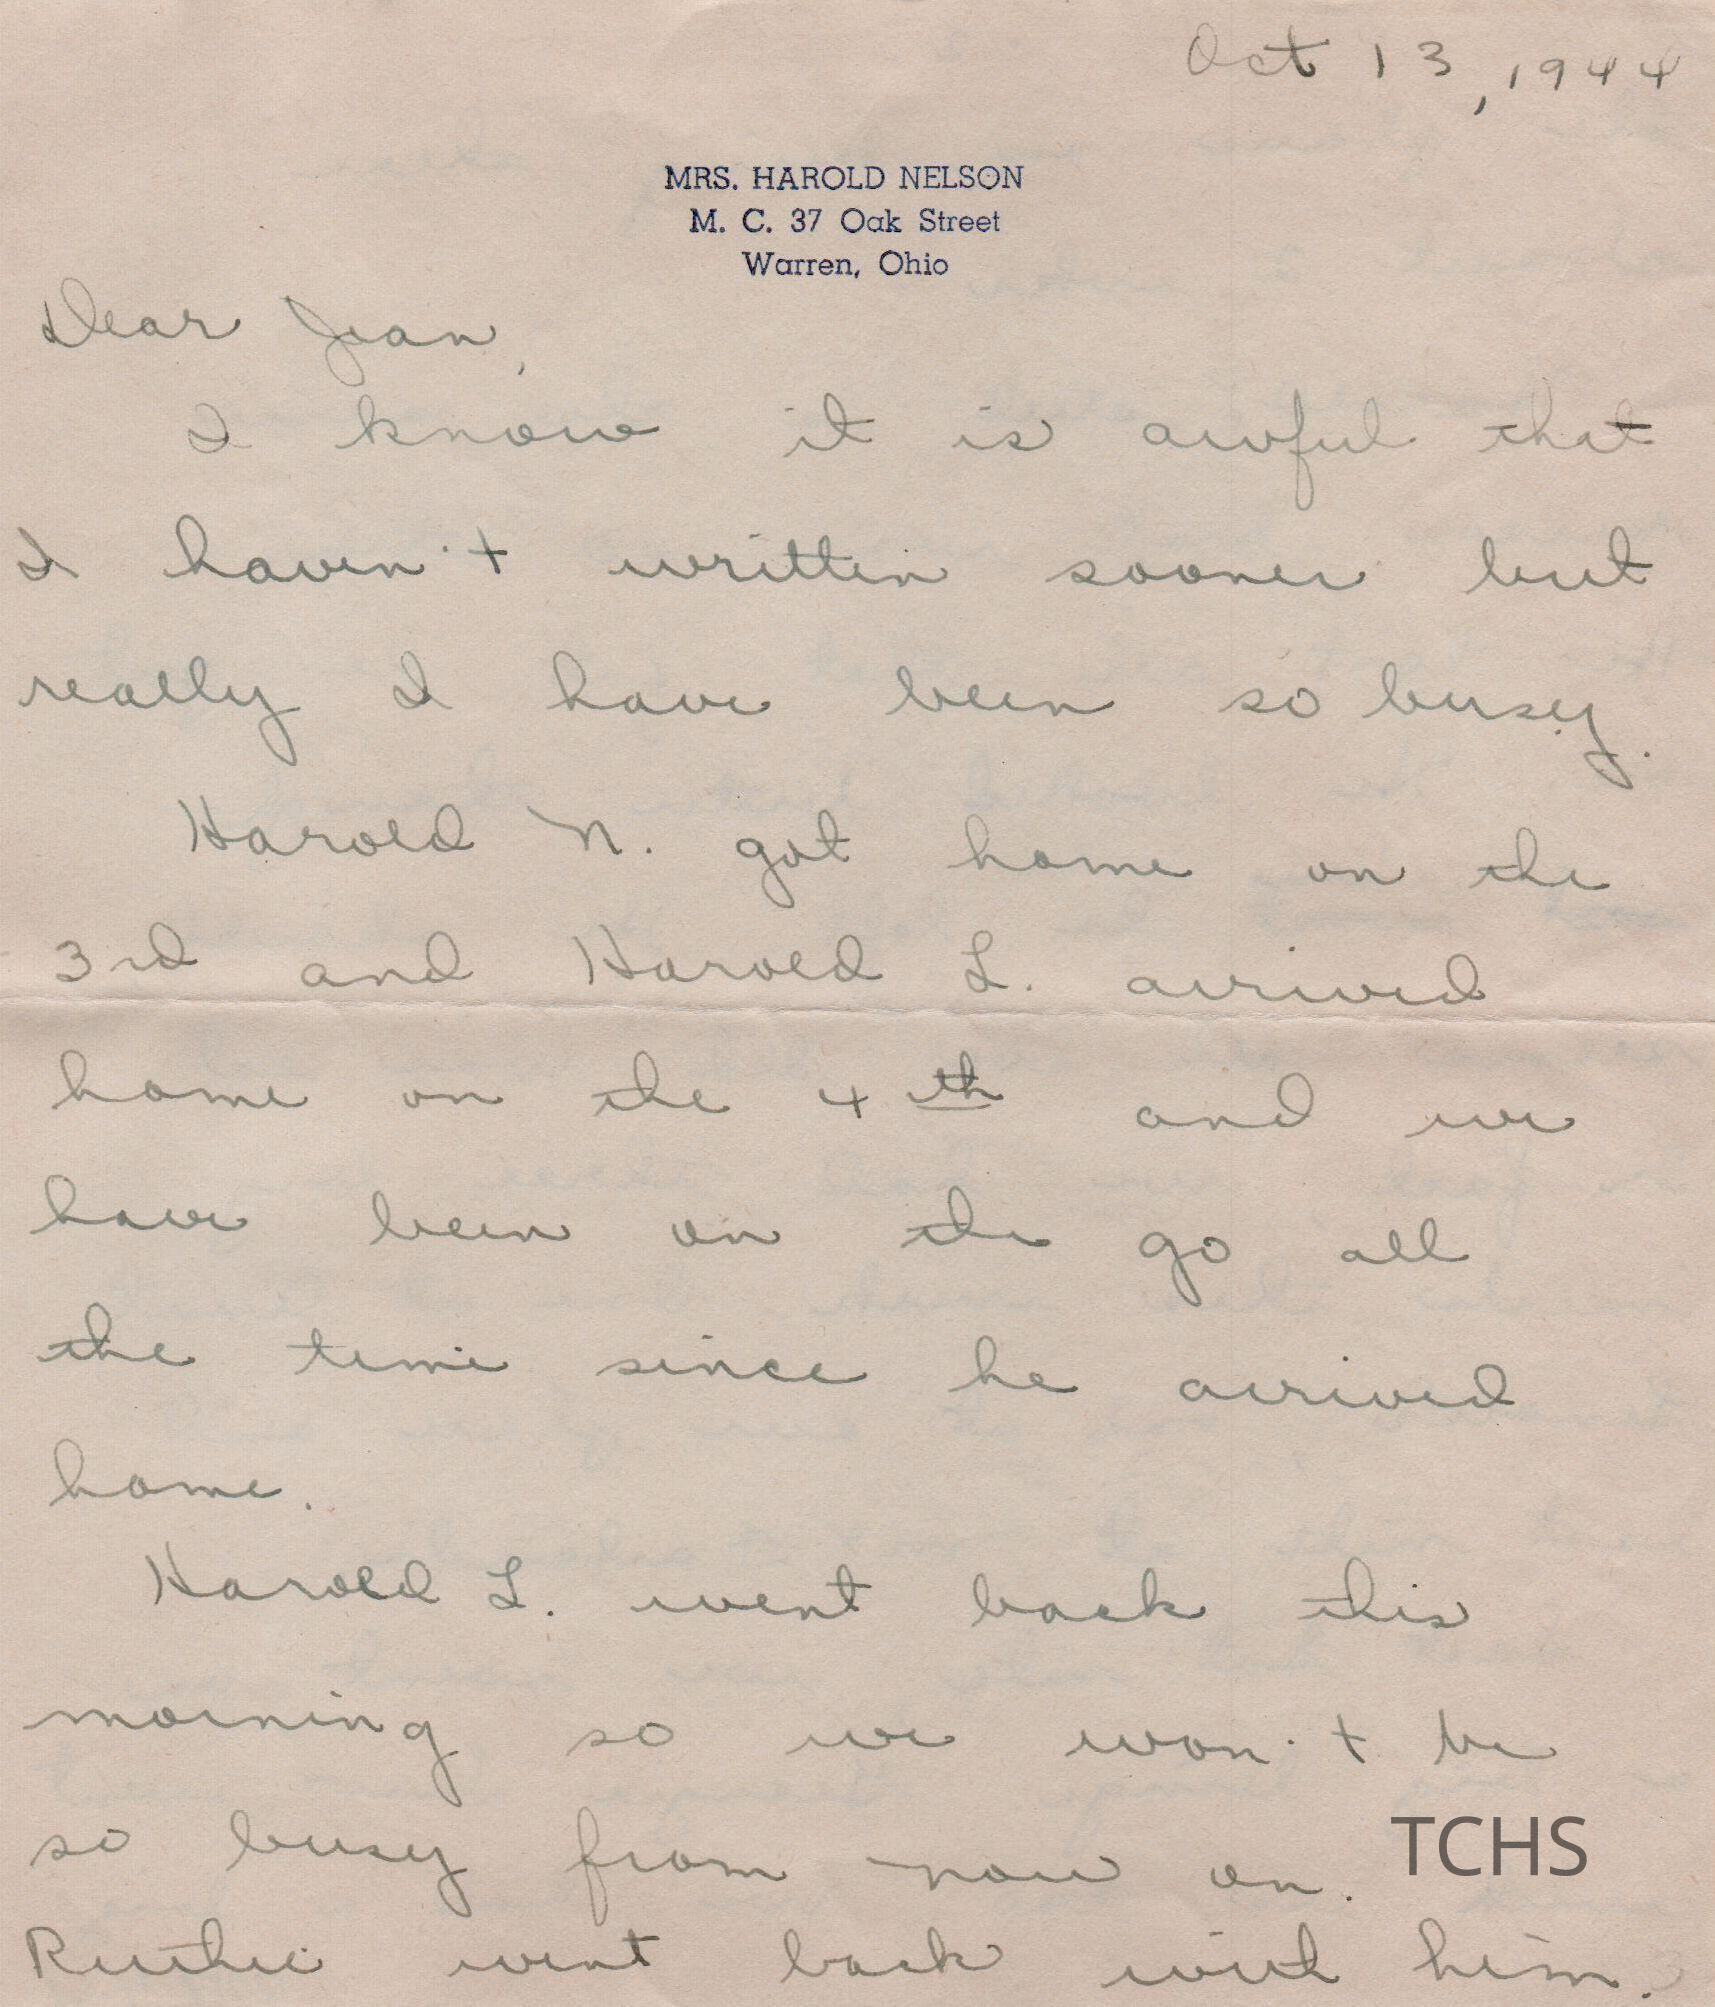 Oct 13, 1944
MRS. HAROLD NELSON
M. C. 37 Oak Street
Warren, Ohio
Dear Jean,
I know it is awful that
I haven't written sooner but
really I have been so busy.
Harold N. got home on the
3rd and Harold L. arrived
home on the 4th and we
have been on the go all
the time since he arrived
home.
Harold L. went back this
morning so we won't be
so busy from now on.
TCHS
Ruthie went back with him.